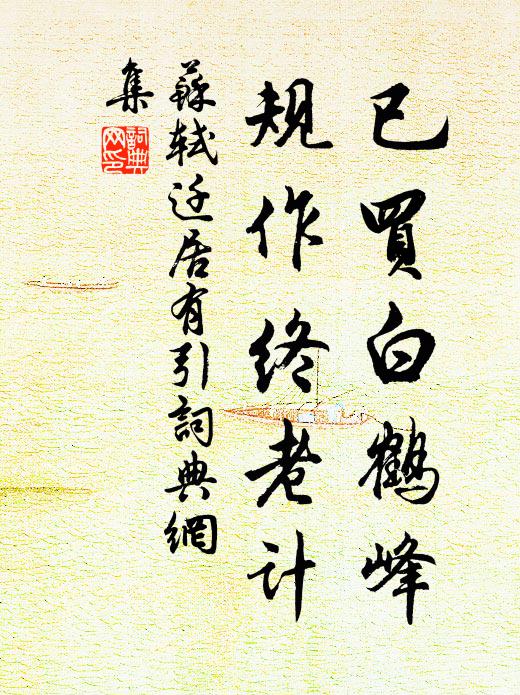 已買白鶴峰
規作終老計
蘇軾迁居有引詞典網
集
詞典
网印